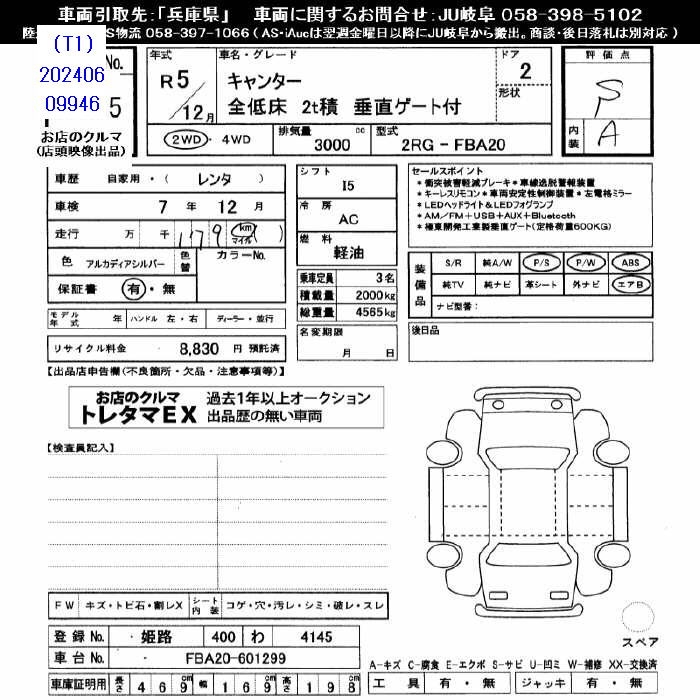 車両引取先：「兵庫県」　車両に関するお問合せ：JU岐阜 058-398-5102
S物流 058-397-1066（AS・iAucは翌週金曜日以降にJU岐阜から搬出。商談・後日落札は別対応）
(T1)
202406
09946
No.
5
お店のクルマ
（店頭映像出品）
年式
R5/12月
車名・グレード
キャンター
全低床 2t積 垂直ゲート付
ドア
2
形状
2WD・4WD
排気量
3000 cc
型式
2RG-FBA20
評価点
S
内装
A
車歴 自家用・（レンタ）
車検 7年 12月
走行 万 千 179 km マイル
色 アルカディアシルバー
色替
カラーNo.
保証書 有・無
モデル年式 年
ハンドル 左・右
ディーラー・並行
リサイクル料金 8,830 円 預託済
シフト
I5
冷房
AC
燃料
軽油
乗車定員 3名
積載量 2000kg
総重量 4565kg
名変期限
月 日
セールスポイント
＊衝突被害軽減ブレーキ＊車線逸脱警報装置
＊キーレスリモコン＊車両安定性制御装置＊左電格ミラー
＊LEDヘッドライト＆LEDフォグランプ
＊AM/FM+USB+AUX+Bluetooth
＊極東開発工業製垂直ゲート（定格荷重600KG）
装備品
S/R 純A/W P/S P/W ABS
純TV 純ナビ 革シート 外ナビ エアB
ナビ型番：
後日品
【出品店申告欄（不良箇所・欠品・注意事項等）】
お店のクルマ
トレタマEX
過去1年以上オークション
出品歴の無い車両
【検査員記入】
FW キズ・トビ石・割レX
シート内装
コゲ・穴・汚レ・シミ・破レ・スレ
登録No. 姫路 400 わ 4145
車台No. FBA20-601299
車庫証明用 長さ 469cm 幅 169cm 高さ 198cm
スペア
A-キズ C-腐食 E-エクボ S-サビ U-凹ミ W-補修 XX-交換済
工具 有・無 ジャッキ 有・無